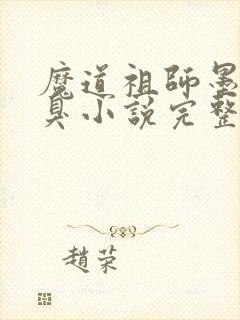 魔道祖師墨
臭小說完整
趙荣